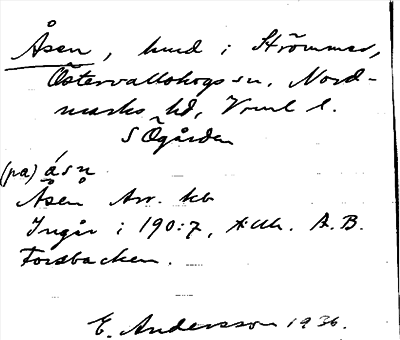 Åsen, hmd i Strömmar,
Östervallskogs sn, Nord-
marks hd, Vrml l.
S Ögården
(pa) ásn
Åsen Arr. kb
Ingår i 190:7, A.B.
Forsbacken.
E. Andersson 1936.